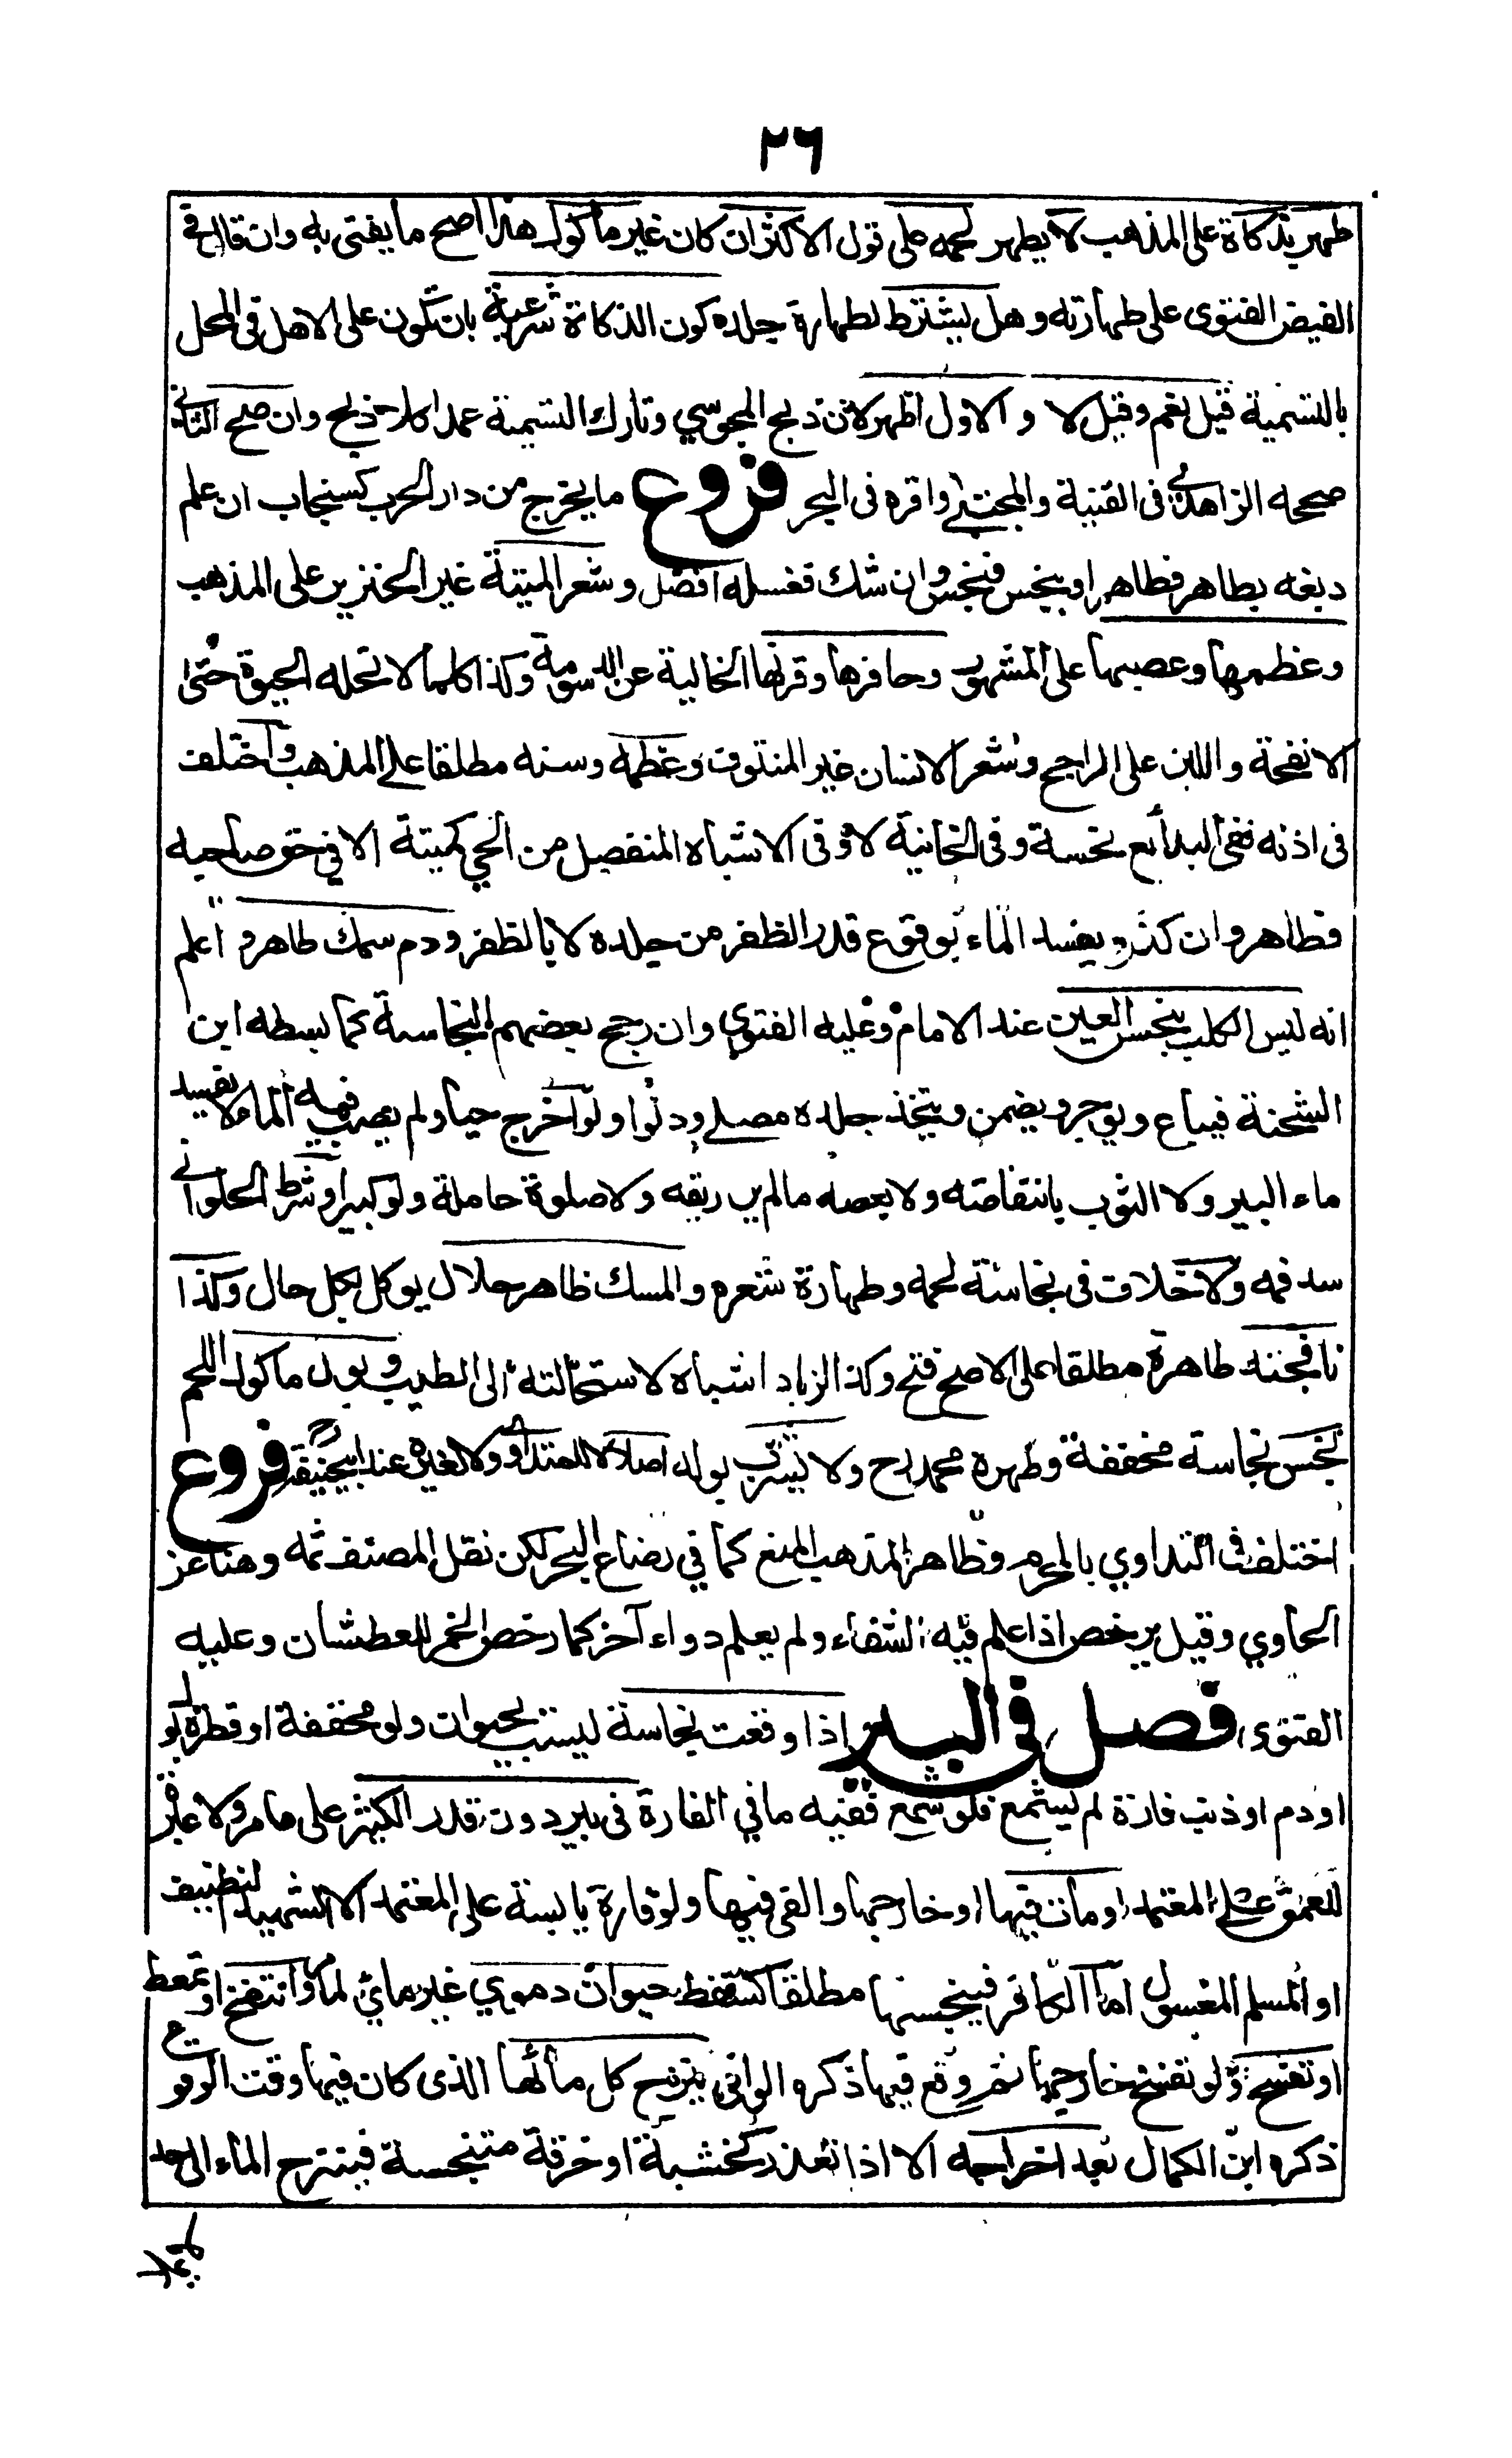 ٢٦
طهر بذكاة على المذهب لا يطهر لحمه على قول الاكثر ان كان غير ماكول هذا اصح ما يفتى به وان قال في
الفيض الفتوى على طهارته وهل يشترط لطهارة جلده كون الذكاة شرعية بان تكون على الاهل في المحل
بالتسمية قيل نعم وقيل لا والاول اظهر لان ذبح المجوسي وتارك التسمية عمدا كلا ذبح وان صحح الثاني
صححه الزاهدي في القنية والمجتبى واقره في البحر فروع ما يخرج من دار الحرب كسنجاب ان علم
دبغه بطاهر فطاهر او بنجس فنجس وان شك فغسله افضل وشعر الميتة غير الخنزير على المذهب
وعظمها وعصبها على المشهور وحافرها وقرنها الخالية عن الدسومة وكذا كلما لا تحله الحيوة حتى
الانفحة واللبن على الراجح وشعر الانسان غير المنتوف وعظمه وسنه مطلقا على المذهب واختلف
في اذنه ففي البدائع نجسة وفي الخانية لا وفي الاشباه المنفصل من الحي كميتة الا في حق صاحبه
فطاهر وان كثر ويفسد الماء بوقوع قدر الظفر من جلده لا بالظفر ودم سمك طاهر واعلم
انه ليس الكلب بنجس العين عند الامام وعليه الفتوى وان رجح بعضهم النجاسة كما بسطه ابن
الشحنة فيباع ويوجر ويضمن ويتخذ جلده مصلى ودلوا ولو اخرج حيا ولم يصب فمه الماء لا يفسد
ماء البير ولا الثوب بانتفاضه ولا بعضه ما لم ير ريقه ولا صلوة حامله ولو كبيرا وشرط الحلواني
سد فمه ولا خلاف في نجاسة لحمه وطهارة شعره والمسك طاهر حلال يوكل بكل حال وكذا
نافجته طاهرة مطلقا على الاصح فتح وكذا الزباد اشباه لاستحالته الى الطيب وبول ماكول اللحم
نجس نجاسة مخففة وطهره محمد رح ولا يشرب بوله اصلا لا للتداوي ولا لغيره عند ابيحنيفة فروع
اختلف في التداوي بالمحرم وظاهر المذهب المنع كما في رضاع البحر لكن نقل المصنف ثمه وهنا عن
الحاوي وقيل يرخص اذا علم فيه الشفاء ولم يعلم دواء آخر كما رخص الخمر للعطشان وعليه
الفتوى فصل في البير اذا وقعت نجاسة ليست بحيوان ولو مخففة او قطرة بول
او دم او ذنب فارة لم يشمع فلو شمع ففيه ما في الفارة في بير دون قدر الكثير على ما مر ولا عبرة
للعمق على المعتمد او مات فيها او خارجها والقي فيها ولو فارة يابسة على المعتمد الا الشهيد لنظيف
او المسلم المغسول اما الكافر فينجسها مطلقا كسقط حيوان دموي غير مائي لما مر وانتفخ او تمعط
او تفسخ ولو تفسخ خارجها ثم وقع فيها ذكره الواني ينزح كل مائها الذي كان فيها وقت الوقوع
ذكره ابن الكمال بعد اخراجه الا اذا تعذر كخشبة او خرقة متنجسة فينزح الماء الى حد